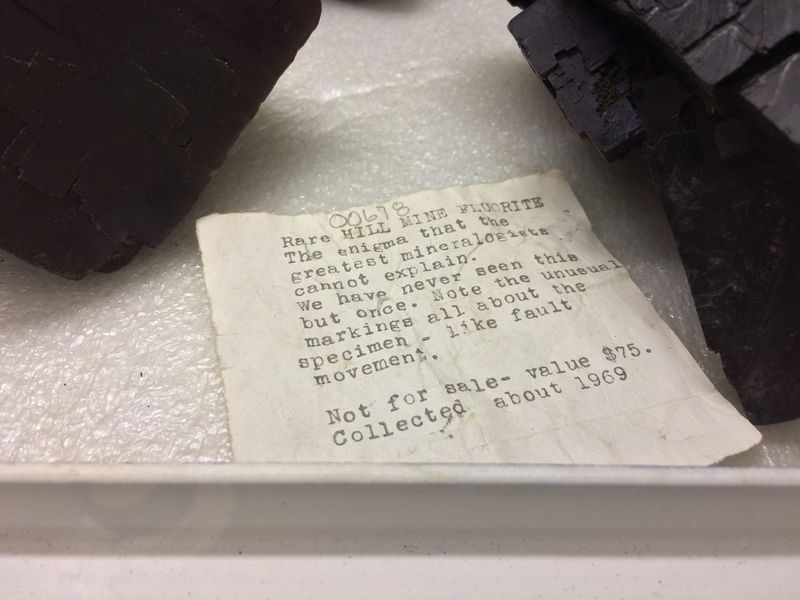 00678
Rare HILL MINE FLUORITE
The enigma that the
greatest mineralogists
cannot explain.
We have never seen this
but once. Note the unusual
markings all about the
specimen - like fault
movement.
Not for sale- value $75.
Collected about 1969